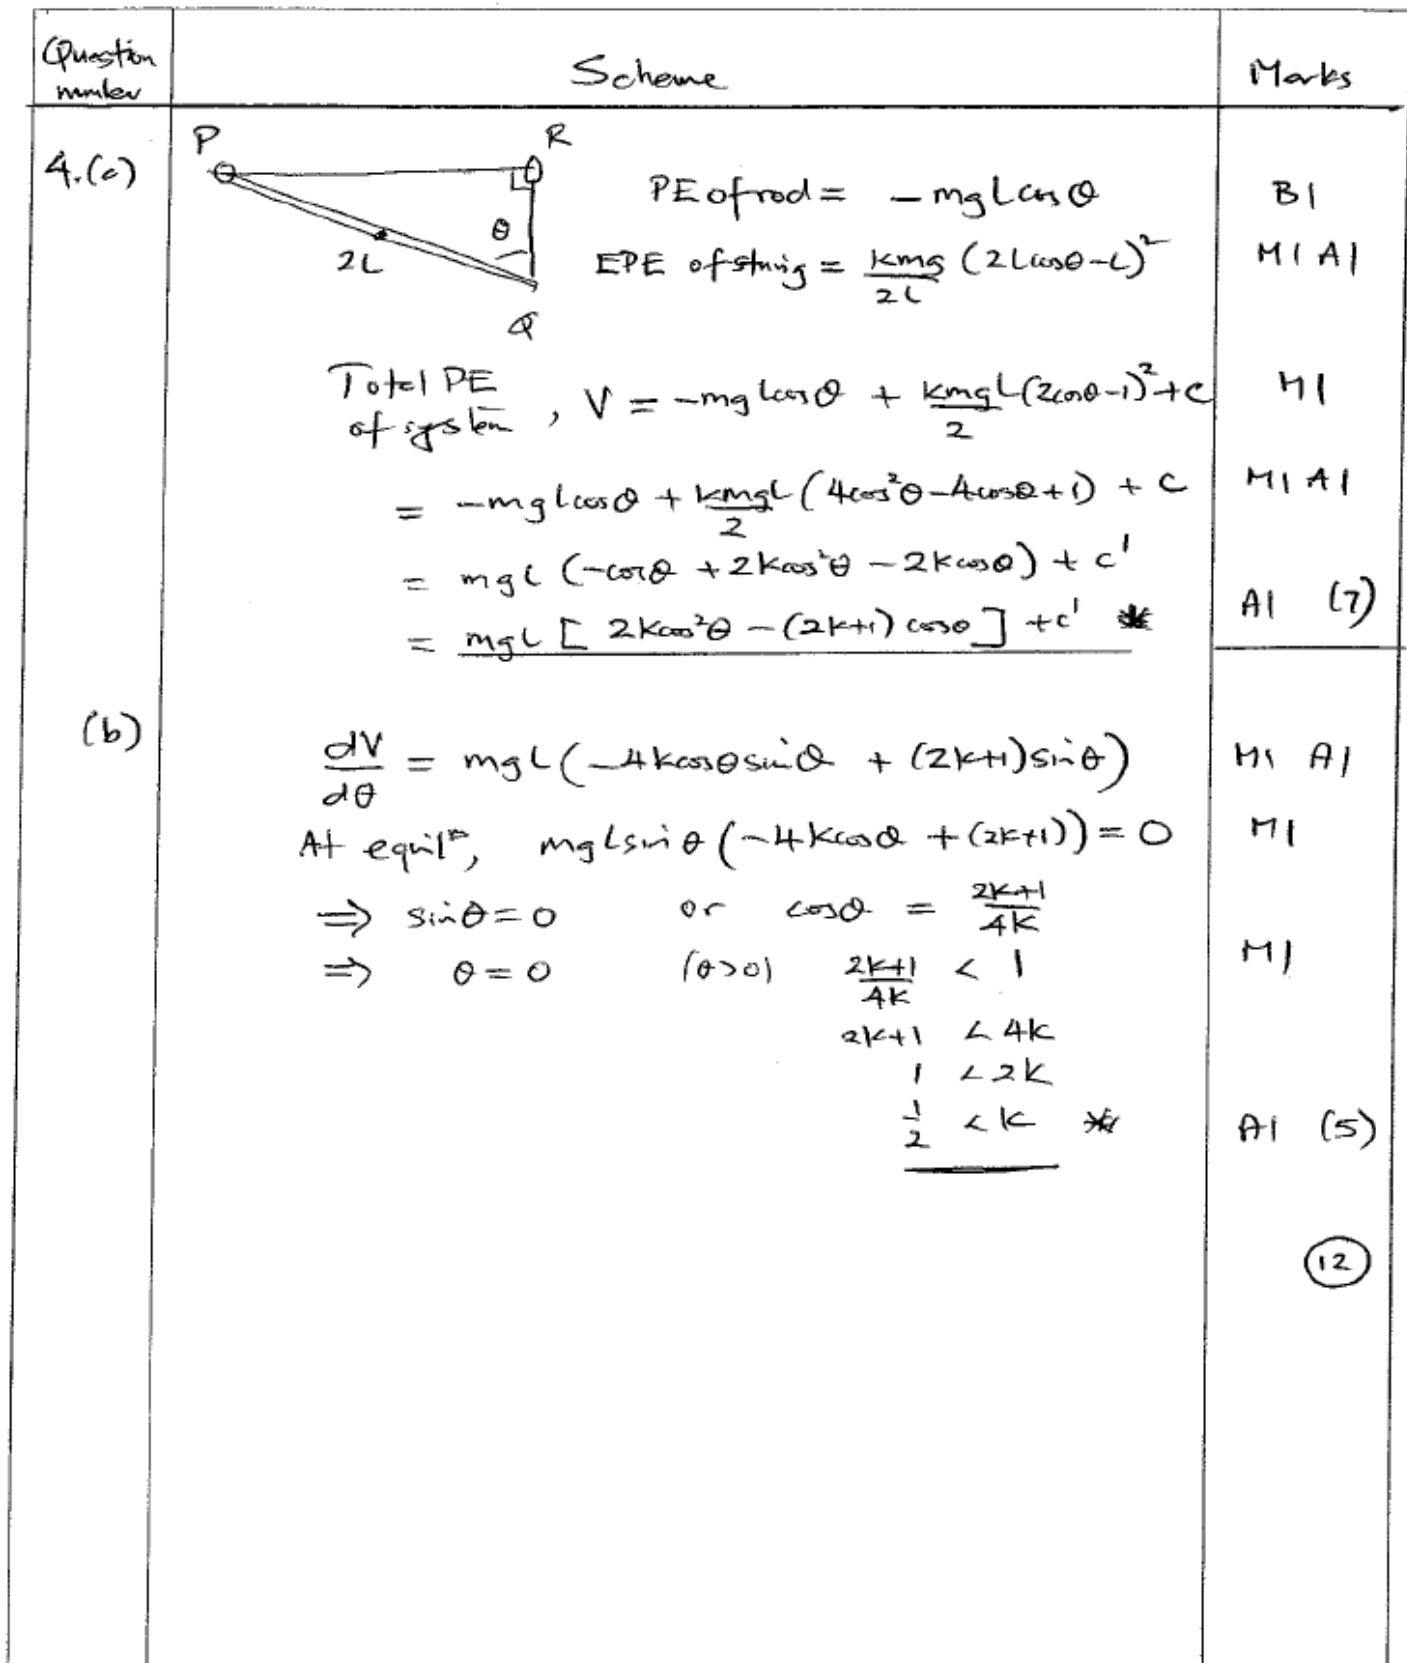 Question number Scheme Marks
4.(a) P R
PE of rod = -mgL cos θ B1
θ
2L
EPE of string = kmg/2L (2L cos θ - L)² M1 A1
Q
Total PE of system, V = -mgL cos θ + kmgL/2 (2cos θ - 1)² + c M1
= -mgL cos θ + kmgL/2 (4cos²θ - 4cos θ + 1) + c M1 A1
= mgL (-cos θ + 2k cos²θ - 2k cos θ) + c'
= mgL [2k cos²θ - (2k+1) cos θ] + c' * A1 (7)
(b) dV/dθ = mgL (-4k cos θ sin θ + (2k+1) sin θ) M1 A1
At equilᵐ, mgL sin θ (-4k cos θ + (2k+1)) = 0 M1
⇒ sin θ = 0 or cos θ = 2k+1/4k
⇒ θ = 0 (θ>0) 2k+1/4k < 1 M1
2k+1 < 4k
1 < 2k
1/2 < k * A1 (5)
12